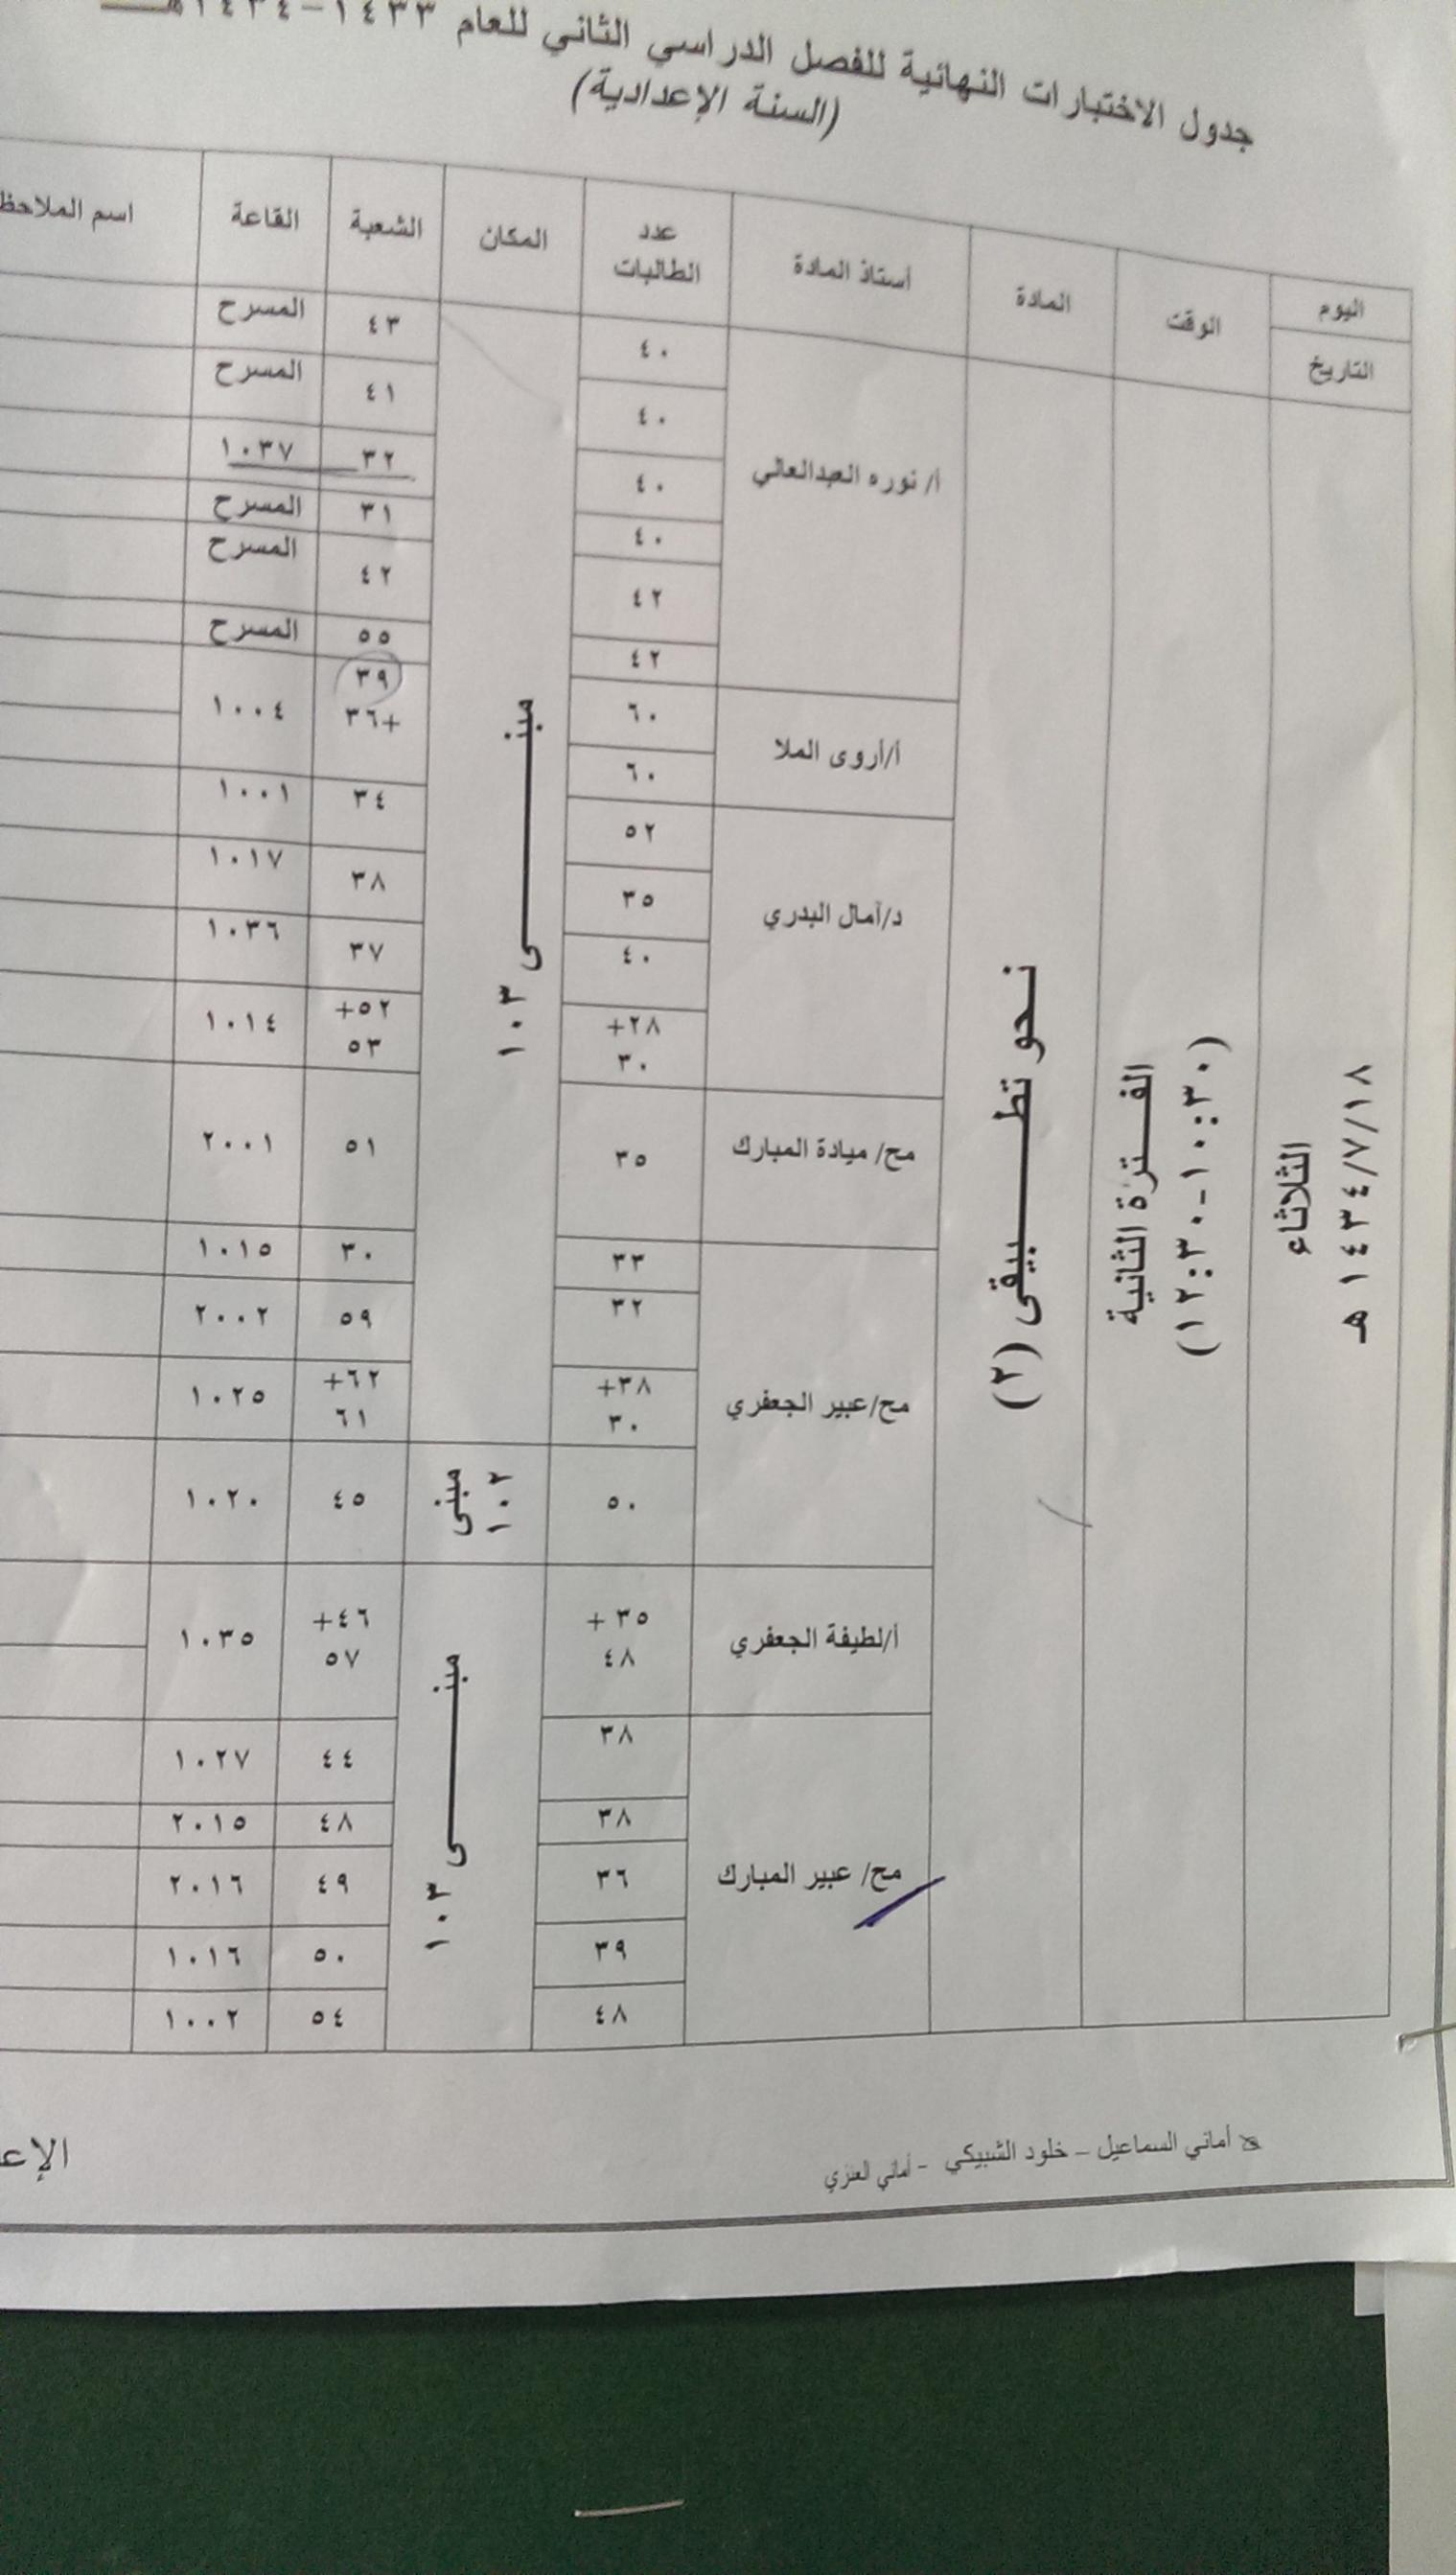 جدول الاختبارات النهائية للفصل الدراسي الثاني للعام ١٤٣٣–١٤٣٤هـ
(السنة الإعدادية)
اليوم
التاريخ
الوقت
المادة
أستاذ المادة
عدد
الطالبات
المكان
الشعبة
القاعة
اسم الملاحظ
الثلاثاء
١٤٣٤/٧/١٨ هـ
الفــترة الثانية
(١٠:٣٠-١٢:٣٠)
نـحو تطـــبيقى (٢)
مبنـــــى ١٠٣
أ/ نوره العبدالعالي
٤٠ ٤٣ المسرح
٤٠ ٤١ المسرح
٤٠ ٣٢ ١٠٣٧
٤٠ ٣١ المسرح
٤٢ ٤٢ المسرح
٤٢ ٥٥ المسرح
أ/أروى الملا
٦٠ ٣٩ ١٠٠٤
+٣٦
٦٠ ٣٤ ١٠٠١
د/آمال البدري
٥٢
٣٥ ٣٨ ١٠١٧
٤٠ ٣٧ ١٠٣٦
٢٨+ ٥٢+ ١٠١٤
٣٠ ٥٣
مح/ ميادة المبارك
٣٥ ٥١ ٢٠٠١
مح/عبير الجعفري
٣٣ ٣٠ ١٠١٥
٣٢ ٥٩ ٢٠٠٢
٣٨+ ٦٢+ ١٠٢٥
٣٠ ٦١
٥٠ مبنى ١٠٢ ٤٥ ١٠٢٠
مبنـــــى ١٠٣
أ/لطيفة الجعفري
٣٥ + ٤٦+ ١٠٣٥
٤٨ ٥٧
مح/ عبير المبارك
٣٨ ٤٤ ١٠٢٧
٣٨ ٤٨ ٢٠١٥
٣٦ ٤٩ ٢٠١٦
٣٩ ٥٠ ١٠١٦
٤٨ ٥٤ ١٠٠٢
أماني السماعيل – خلود الشبيكي – أماني العنزي
الإع